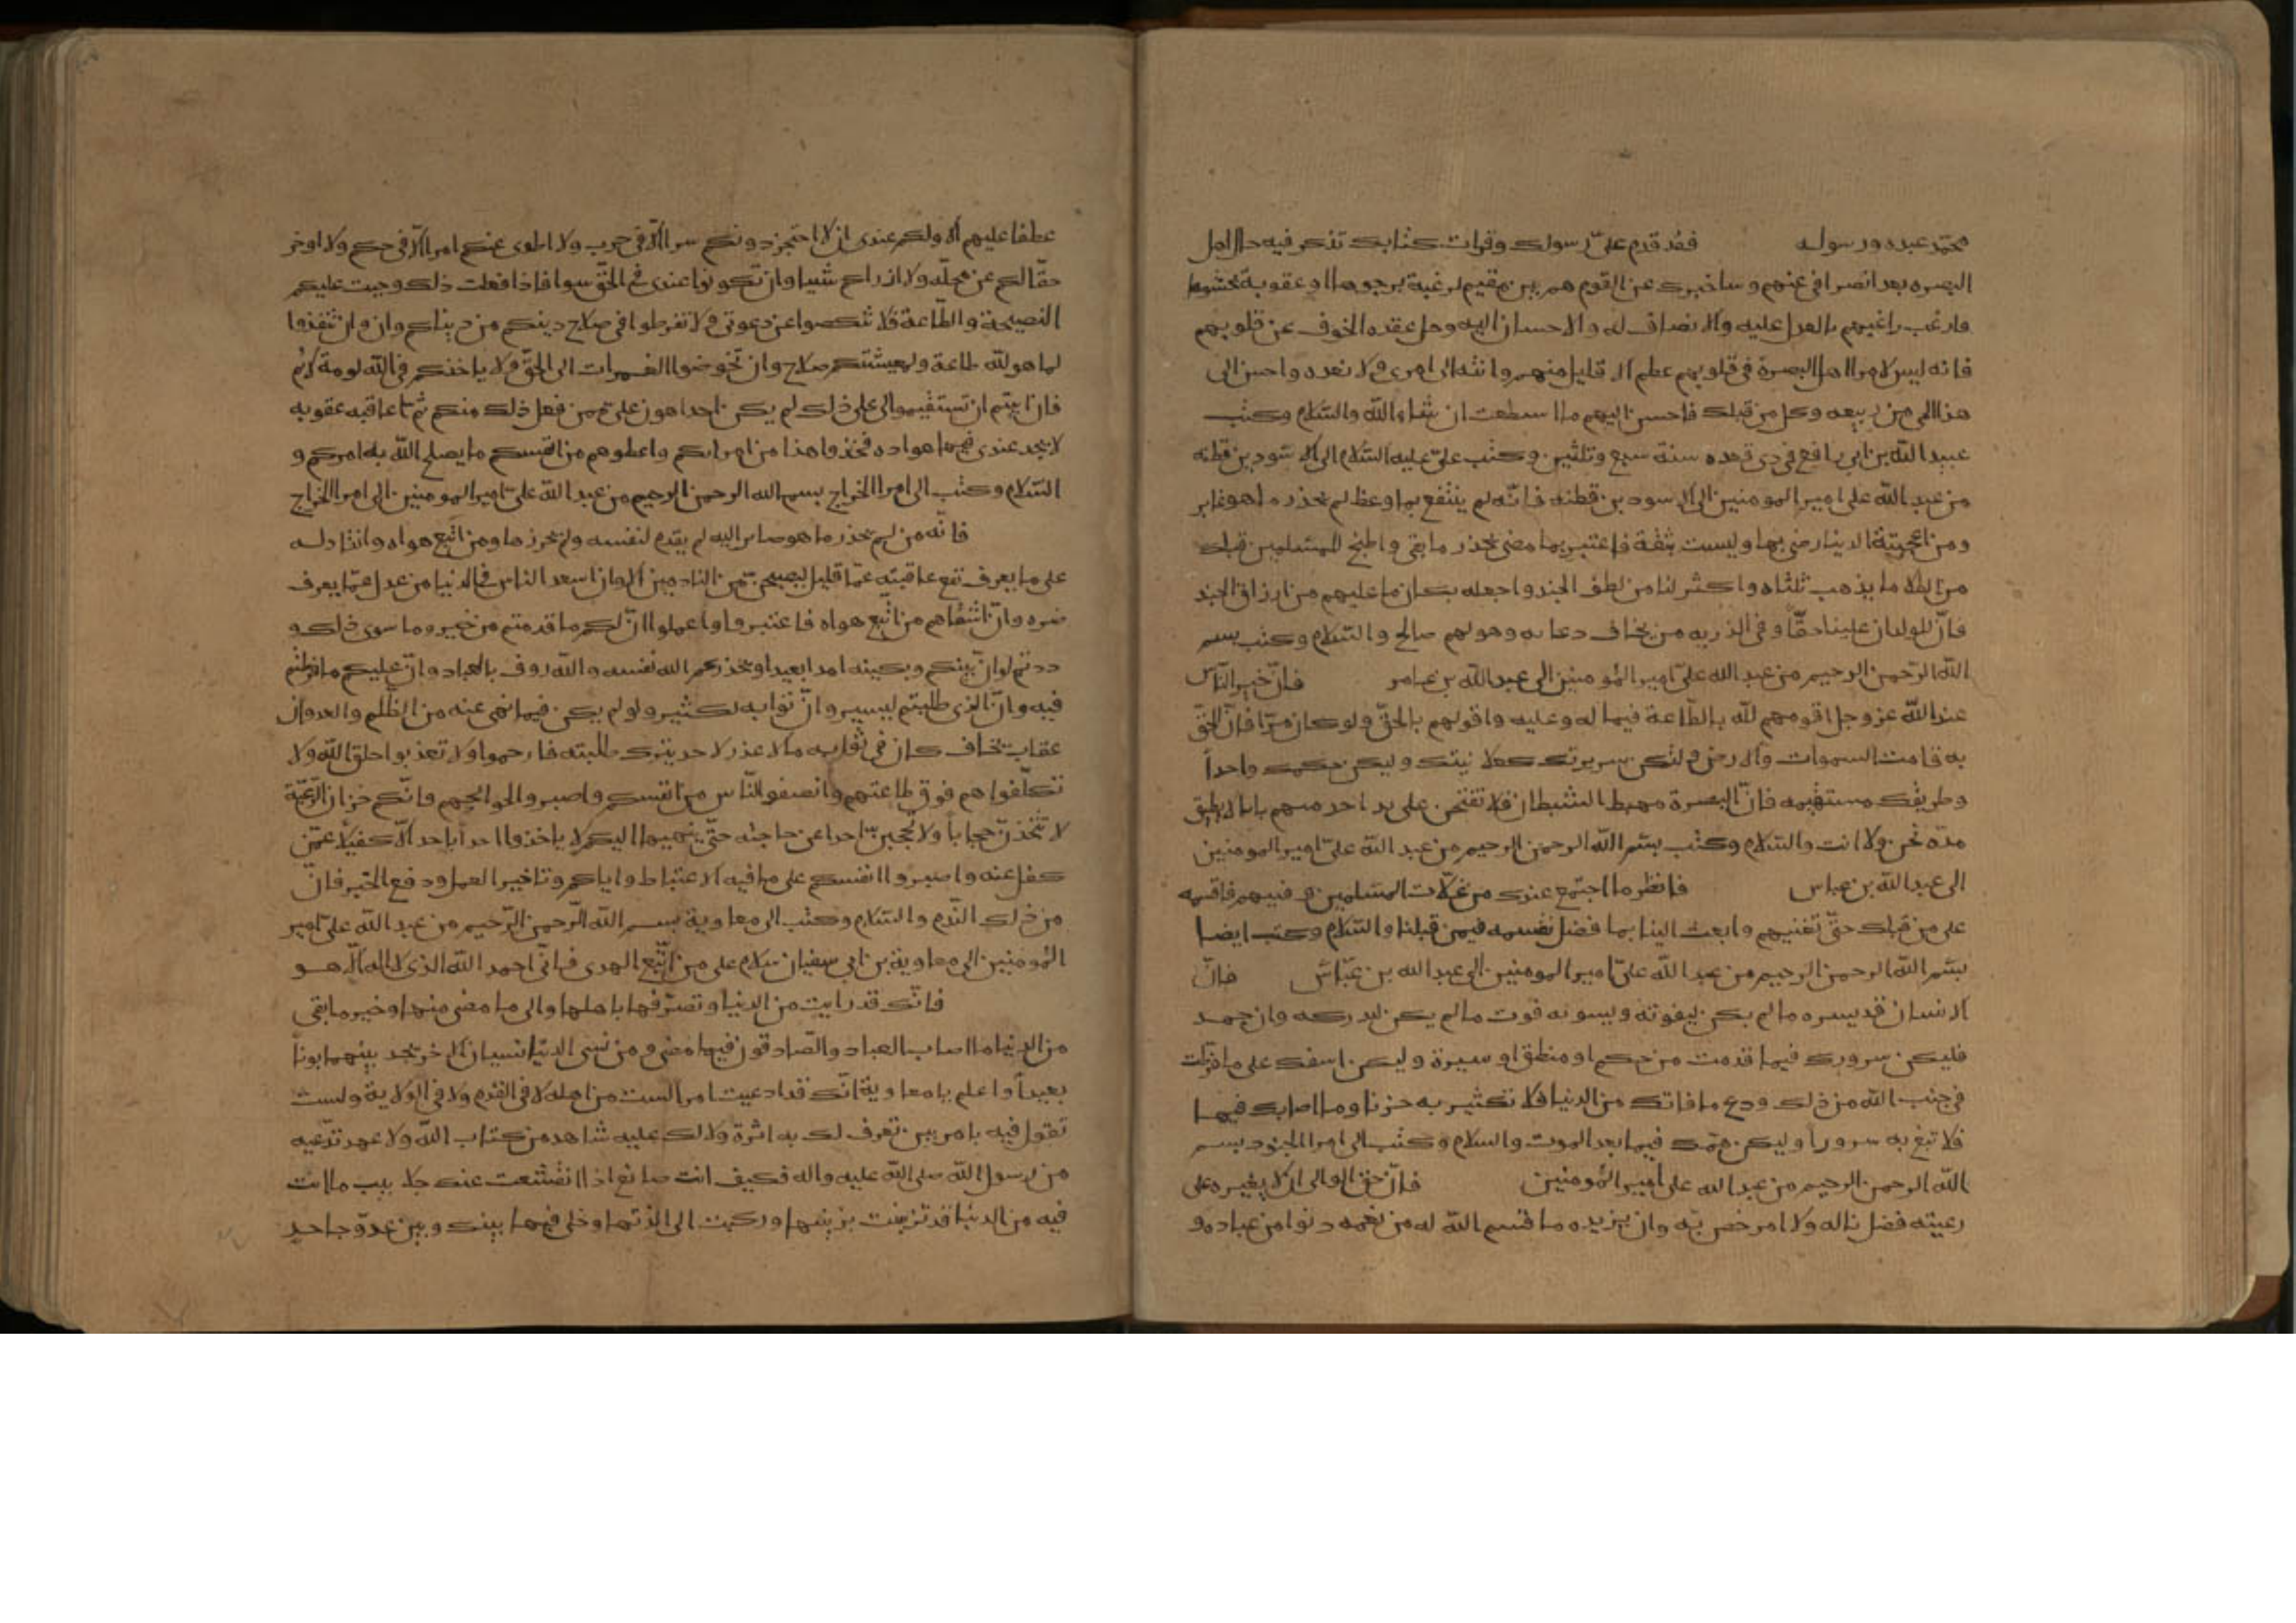 محمد عبده ورسوله فقد قدم علىّ رسولك وقرات كتابك تذكر فيه حال اهل
البصره بعد انصرافى عنهم وساخبرك عن القوم هم بين مقيم لرغبة يرجوها او عقوبة يخشاها
فارغب راغبهم بالعدل عليه والانصاف له والاحسان اليه وحل عقدة الخوف عن قلوبهم
فانه ليس لامراا اهل البصرة فى قلوبهم عظم الا قليل منهم وانته الى امرى ولا تعده واحسن الى
هذا الحى من ربيعه وكل من قبلك فاحسن اليهم ما اسطعت ان شاء الله والسّلام وكتب
عبيد الله بن ابى رافع فى ذى قعده سنة سبع وثلثين وكتب علىّ عليه السّلام الى الاسود بن قطنه
من عبد الله على امير المومنين الى الاسود بن قطنه فانّه لم ينتفع بما وعظ لم يحذر ما هو غابر
ومن اعجبته الدنيا رضى بها وليست بثقة فاعتبر بما مضى تحذر ما بقى واطبخ للمسلمين قبلك
من الطلا ما يذهب ثلثاه واكثر لنا من لطف الجند واجعله بكان ما عليهم من ارزاق الجند
فانّ للولدان علينا حقّا وفى الذريه من يخاف دعاه وهو لهم صالح والسّلام وكتب بسم
الله الرّحمن الرحيم من عبد الله علىّ امير المؤمنين الى عبد الله بن عامر فانّ خير النّاس
عند الله عز وجل اقومهم لله بالطّاعة فيما له وعليه واقولهم بالحقّ ولو كان مرّا فانّ الحقّ
به قامت السموات والارض ولتكن سريرتك كعلا نيتك وليكن حكمك واحداً
وطريقتك مستقيمه فانّ البصرة مهبط الشيطان فلا تفتحن على يد احد منهم بابا لا يطيق
سدّه نحن ولا انت والسّلام وكتب بسم الله الرحمن الرحيم من عبد الله علىّ امير المومنين
الى عبد الله بن عباس فانظر ما اجتمع عندك من غلّات المسلمين و فييهم فاقسمه
على من قبلك حتّى تغنيهم وابعث الينا بما فضل نقسمه فيمن قبلنا والسّلام وكتب ايضا
بسم الله الرحمن الرحيم من عبد الله علىّ امير المومنين الى عبد الله بن عبّاس فانّ
الانسان قد يسره ما لم يكن ليفوته ويسوئه فوت ما لم يكن ليدركه وان جهد
فليكن سرورك فيما قدمت من حكم او منطق او سيرة وليكن اسفك على ما فرّطت
فى جنب الله من ذلك ودع ما فاتك من الدنيا فلا تكثير به حزنا وما اصابك فيها
فلا تبغ به سرورا وليكن همّك فيما بعد الموت والسلام وكتب الى امرا الجنود بسم
الله الرحمن الرحيم من عبد الله على امير المؤمنين فانّ حق الوالى ان لا يغيره على
رعيته فضل ناله ولا امر خص به وان يزيده ما قسم الله له من نعمه دنوا من عباده و
عطفا عليهم الا ولكم عندى ان لا احتجز دونكم سرا الّا فى حرب ولا اطوى عنكم امرا الّا فى حكم ولا اوخر
حقّا لكم عن محلّه ولا ازراكم شيا وان تكونوا عندى فى الحقّ سوا فاذا فعلت ذلك وجبت عليكم
النصيحة والطّاعة فلا تنكصوا عن دعوتى ولا تفرطوا فى صلاح دينكم من دنياكم وان وان تنفذوا
لما هو لله طاعة ولمعيشتكم صلاح وان تخوضوا الغمرات الى الحقّ ولا ياخذكم فى الله لومة لائم
فان ابيتم ان تستقيموا لى على ذلك لم يكن احدا هون علىّ من فعل ذلك منكم ثم اعاقبه عقوبه
لا يجد عندى فيها هواده فخذوا هذا من امرائكم واعطوهم من انفسكم ما يصلح الله به امركم و
السّلام وكتب الى امرا الخراج بسم الله الرحمن الرحيم من عبد الله علىّ امير المومنين الى امرا الخراج
فانّه من لم يحذر ما هو صاير اليه لم يقدم لنفسه ولم يحرزها ومن اتّبع هواه وانقاد له
على ما يعرف نفع عاقبته عمّا قليل ليصبحنّ من النادمين الا وان اسعد الناس فى الدنيا من عدل عمّا يعرف
ضره وانّ اشقاهم من اتّبع هواه فاعتبروا واعملوا انّ لكم ما قدمتم من خير وما سوى ذلك و
ددتم لو انّ بينكم وبينه امدا بعيدا ويحذركم الله نفسه والله روف بالعباد وانّ عليكم ما فرطتم
فيه وانّ الذى طلبتم ليسير وانّ ثوابه لكثير ولو لم يكن فيما نهى عنه من الظّلم والعدوان
عقاب يخاف كان فى ثوابه ما لا عذر لاحد بترك طلبته فارحموا ولا تعذبوا خلق الله ولا
تكلّفوا هم فوق طاعتهم وانصفو النّاس من انفسكم واصبروا لحوائجهم فانّكم خزان الرعيّة
لا تتّخذنّ حجابا ولا تحجبنّ احدا عن حاجته حتّى ينهيها اليكم لا ياخذوا احدا باحد الّا كفيلا عمّن
كفل عنه واصبروا انفسكم على ما فيه الاغتباط واياكم وتاخير العمل ودفع الخير فانّ
من ذلك النّدم والسّلام وكتب الى معاوية بسم الله الرّحمن الرّحيم من عبد الله علىّ امير
المؤمنين الى معاوية بن ابى سفيان سلام على من اتّبع الهدى فانّى احمد الله الذى لا اله الّا هو
فانّك قد رايت من الدنيا وتصرّفها باهلها والى ما مضى منها وخير ما بقى
من الدنيا ما اصاب العباد والصّادقون فيها مضى ومن نسى الدنيا نسيان الاخر تجد بينهما بونا
بعيداً واعلم يا معاوية انّك قد ادعيت امرا لست من اهله لا فى القدم ولا فى الولاية ولست
تقول فيه بامر بين تعرف لك به اثرة ولا لك عليه شاهد من كتاب الله ولا عهد تدّعيه
من رسول الله صلى الله عليه واله فكيف انت صانع اذا انقشعت عنك جلا بيب ما انت
فيه من الدنيا قد تزينت بزينتها وركنت الى لذتها وخلى فيها بينك وبين عدوّ جاحد